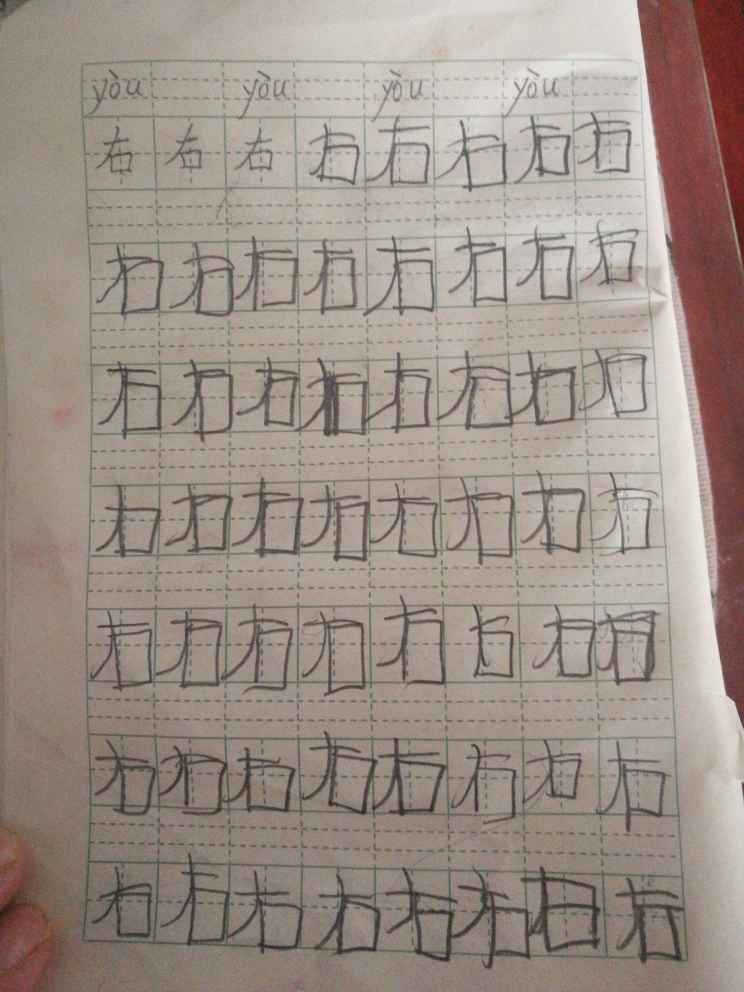 yòu yòu yòu yòu
右 右 右 右 右 右 右 右
右 右 右 右 右 右 右 右
右 右 右 右 右 右 右 右
右 右 右 右 右 右 右 右
右 右 右 右 右 右 右 右
右 右 右 右 右 右 右 右
右 右 右 右 右 右 右 右